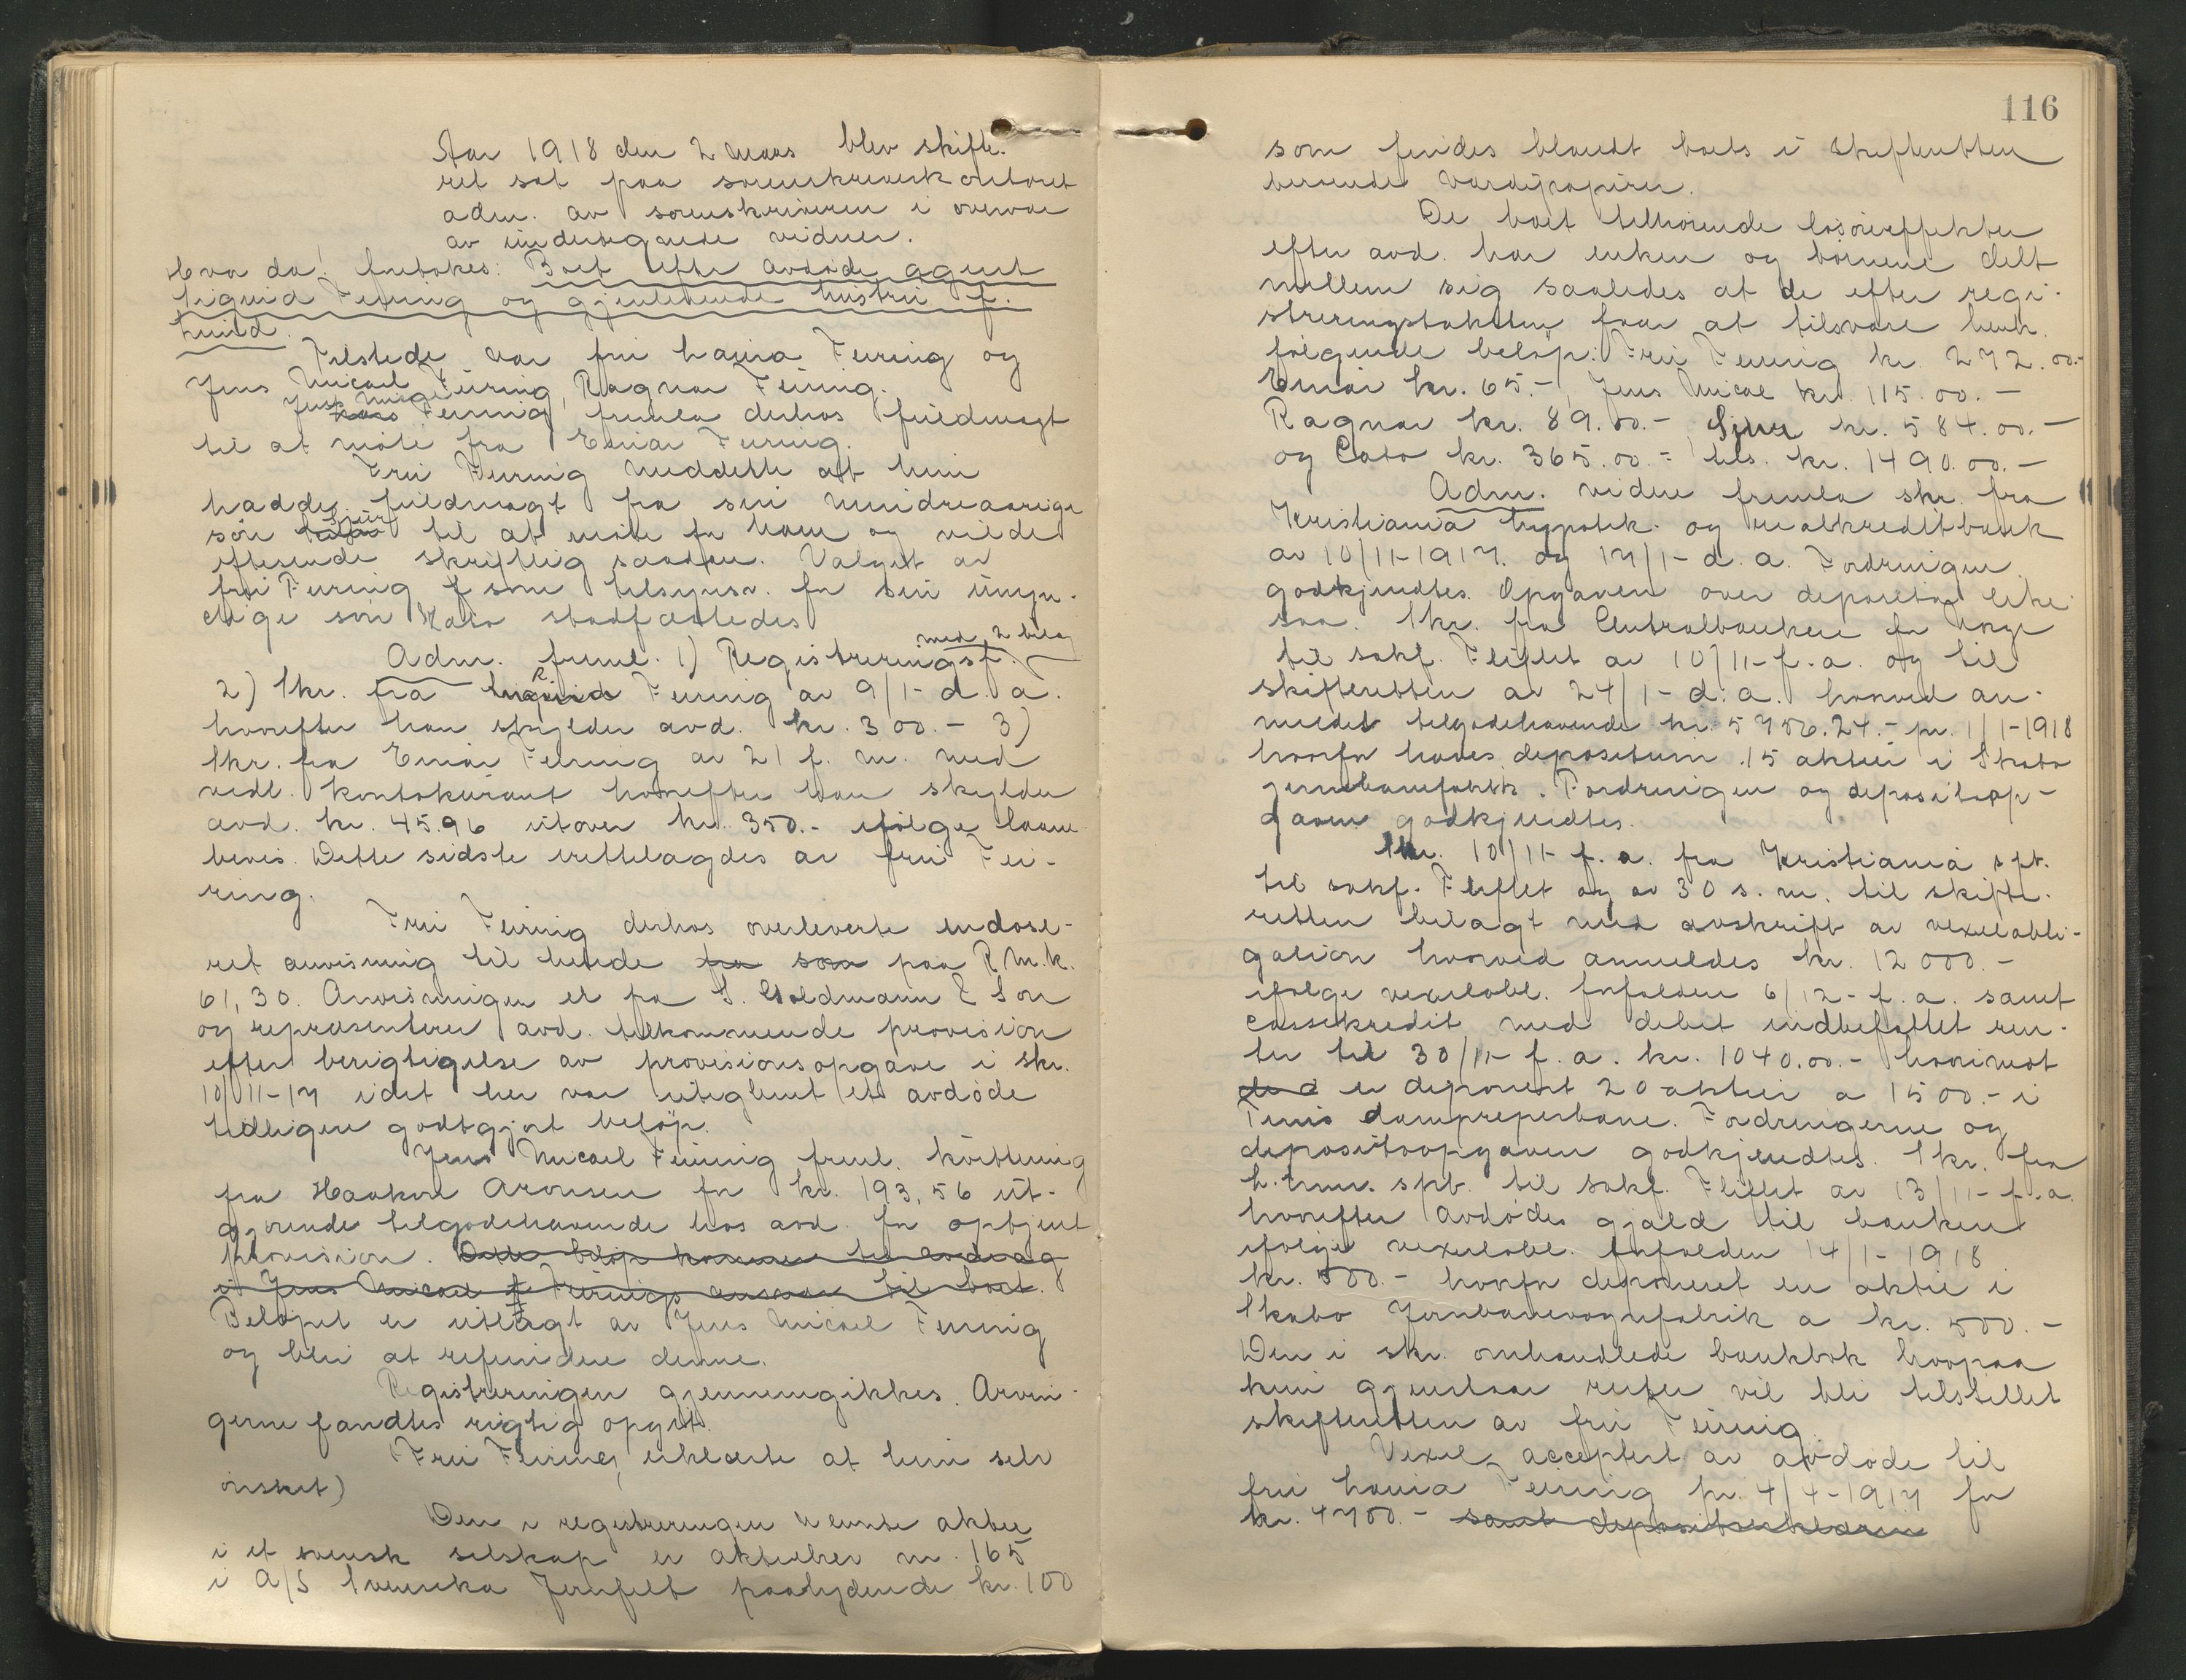 Aar 1918 den 2 mars blev skifte-
ret sat paa sorenskriverkontoret
adm. av sorenskriveren i overvær
av undertegnede vidner.
Hvor da! foretokes: Boet efter avdøde agent
Feiring og gjenlevende hustru f.
Tilstede var fru Feiring og
Jens Micael Feiring, Ragnar Feiring.
Feiring fremla derhos fuldmagt
til at møte fra Einar Feiring.
Fru Feiring meddelte at hun
hadde fuldmagt fra sin mindreaarige
søn til at møte for ham og vilde
eftersende skriftlig saadan. Valget av
fru Feiring som tilsynsv. for sin umyn-
dige søn Kato stadfæstedes
med 2 bilag
Adm. freml. 1) Registreringsf.
2) Skr. fra Feiring av 9/1- d. a.
hvorefter han skylder avd. kr. 300.- 3)
Skr. fra Einar Feiring av 21 f. m. med
vedl. kontokurant hvorefter han skylder
avd. kr. 45.96 utover kr. 350.- ifølge laane-
bevis. Dette sidste rettelagdes av fru Fei-
ring.
Fru Feiring derhos overleverte endose-
ret anvisning til hende fra som paa R.m.k.
61,30. Anvisningen er fra S. Goldmann & Son
og repræsenterer avd. tilkommende provision
efter berigtigelse av provisionsopgave i skr.
10/11-17 idet her var uteglemt et avdøde
tidligere godtgjort beløp.
Jens Micael Feiring freml. kvittering
fra Haakon Aronsen for kr. 193,56 ut-
gjørende tilgodehavende hos avd. for optjent
provision. Dette beløp kommer til avdrag
i Jens Micael Feirings ansvar til boet.
Beløpet er utlagt av Jens Micael Feiring
og blir at refundere denne.
Registreringen gjennemgikkes. Arvin-
gerne fandtes rigtig opgit.
Fru Feiring erklærte at hun selv
ønsket)
Den i registreringen nevnte aktie
i et svensk selskap er aktiebrev nr. 165
i A/S Svenska Jernfelt paalydende kr. 100
116
som findes blandt boets i skifteretten
beroende værdipapirer.
De boet tilhørende løsøreeffekter
efter avd. har enken og børnene delt
mellem sig saaledes at de efter regi-
streringstaksten faar at tilsvare henh.
følgende beløp: Fru Feiring kr. 272.00.-
Einar kr. 65.- Jens Micael kr. 115.00.-
Ragnar kr. 89.00.- kr. 584.00.-
og Cato kr. 365.00.= tils. kr. 1490.00.-
Adm. videre fremla skr. fra
Kristiania hypotek- og realkreditbank
av 10/11-1917. og 17/1- d. a. Fordringen
godkjendtes. Opgaven over depositoa like-
saa. Skr. fra Centralbanken for Norge
til sakf. Fliflet av 10/11- f. a. og til
skifteretten av 24/1- d. a. hvorved an-
meldes tilgodehavende kr. 5756.24.- pr. 1/1-1918
hvorfor haves depositum 15 aktier i Skabo
jernbanefabrik. Fordringen og depositaop-
gaven godkjendtes.
Skr. 10/11- f. a. fra Kristiania spb.
til sakf. Fliflet og av 30 s. m. til skifte-
retten bilagt med avskrift av vexelobli-
gation hvorved anmeldes kr. 12000.-
ifølge vexelobl. forfalden 6/12- f. a. samt
cassekredit med debet indbefattet ren-
ter til 30/11- f. a. kr. 1040.00.- hvorimot
der er deponert 20 aktier a 1500.- i
dampreperbane. Fordringerne og
depositaopgaven godkjendtes. Skr. fra
spb. til sakf. Fliflet av 13/11- f. a.
hvorefter avdødes gjæld til banken
ifølge vexelobl. forfalden 14/1-1918
kr. 500.- hvorfor deponeret en aktie i
Skabo Jernbanevognfabrik a kr. 500.-
Den i skr. omhandlede bankbok hvorpaa
kun gjenstaar renter vil bli tilstillet
skifteretten av fru Feiring.
Vexel, acceptert av avdøde til
fru Feiring pr. 4/4-1917 for
kr. 4700.- samt depositoerklæring